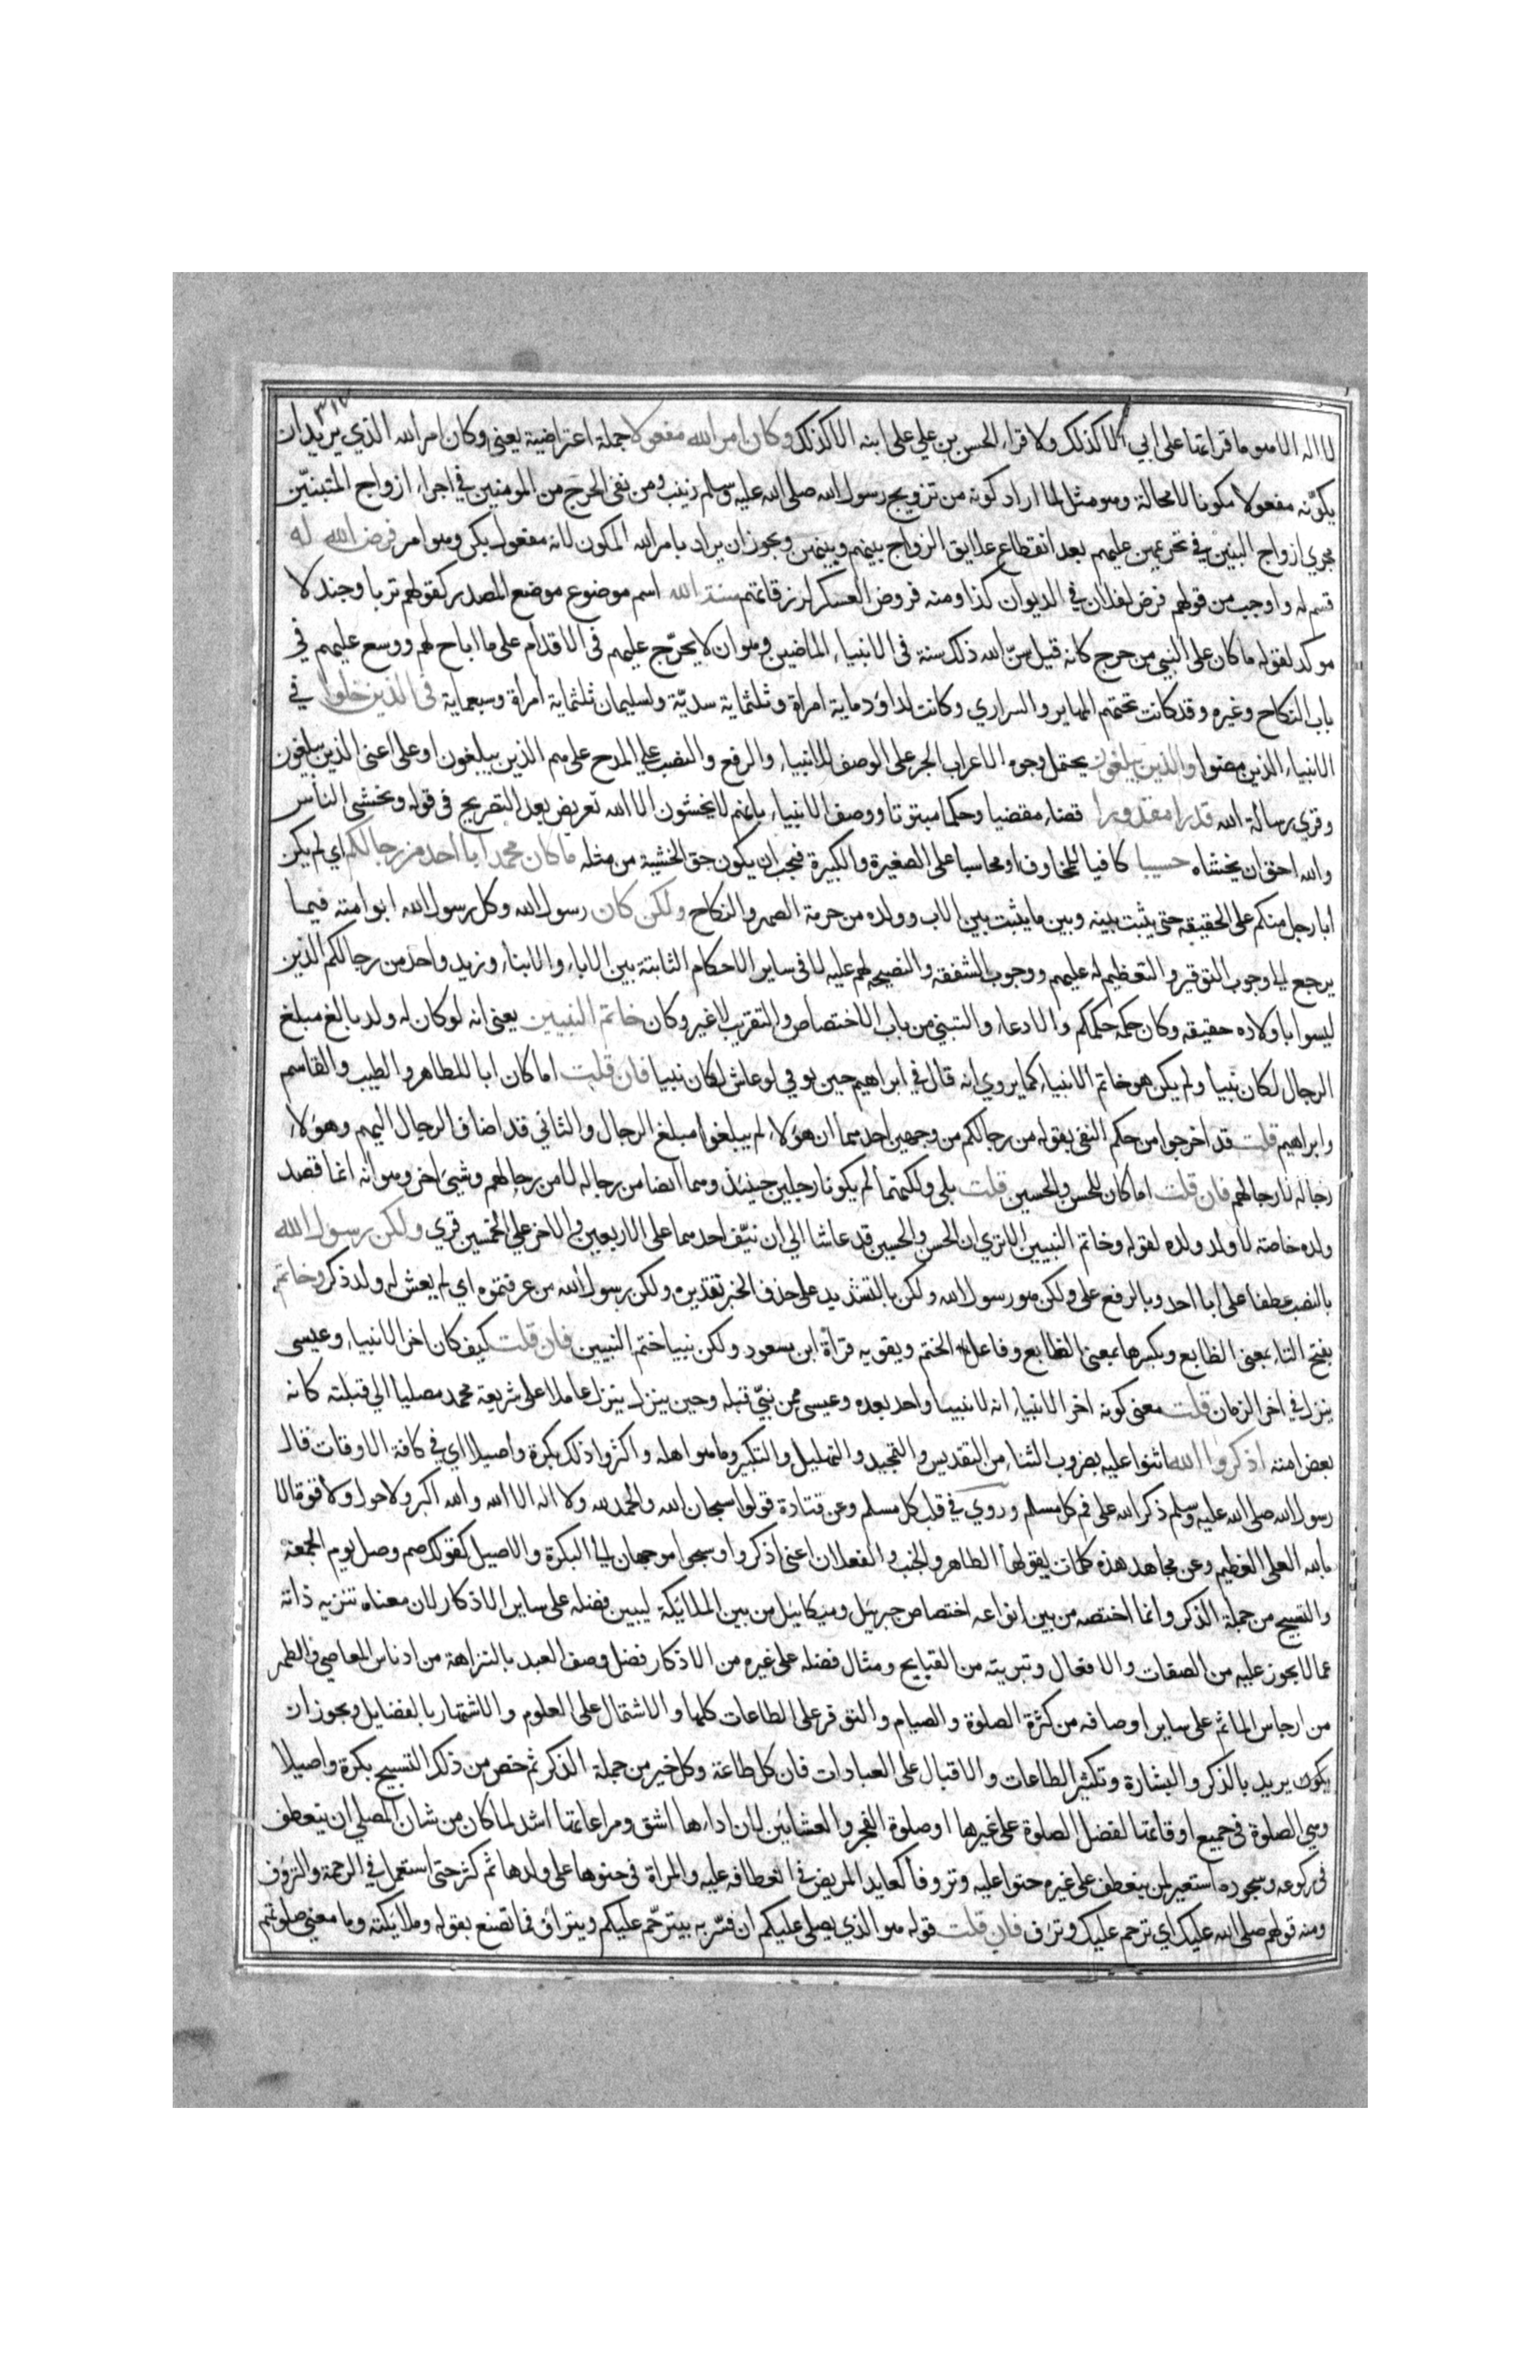 ٣١٧
لا اله الا هو ما قراتها على ابي الا كذلك ولا قراء الحسن بن علي على ابنه الا كذلك وكان امر الله مفعولا جملة اعتراضية يعني وكان امر الله الذي يريد ان
يكوّنه مفعولا مكونا لا محالة وهو مثل لما اراد كونه من تزويج رسول الله صلى الله عليه وسلم زينب ومن نفى الحرج من المومنين في اجراء ازواج المتبنيّن
مجري ازواج البنين في تحريمهن عليهم بعد انقطاع علايق الزواج بينهم وبينهن ويجوز ان يراد بامر الله المكون لانه مفعول بكن وهو امر فرض الله له
قسم له واوجب من قولهم فرض لفلان في الديوان كذا ومنه فروض العسكر لرزقاتهم سنة الله اسم موضوع موضع المصدر كقولهم تربا وجندلا
موكد لقوله ما كان على النبي من حرج كانه قيل سنّ الله ذلك سنة في الانبياء الماضين وهو ان لا يحرّج عليهم في الاقدام على ما اباح لهم ووسع عليهم في
باب النكاح وغيره وقد كانت تحتهم المهاير والسراري وكانت لداود ماية امراة وثلثماية سريّة ولسليمان ثلثماية امراة وسبعماية في الذين خلوا في
الانبياء الذين مضوا والذين يبلغون يحتمل وجوه الاعراب الجر على الوصف للانبياء والرفع والنصب على المدح على هم الذين يبلغون او على اعني الذين يبلغون
وقري رسالة الله قدرا مقدورا قضاء مقضيا وحكما مبتوتا ووصف الانبياء بانهم لا يخشون الا الله تعريض بعد التصريح في قوله وتخشى الناس
والله احق ان يخشاه حسيبا كافيا للمخاوف او محاسبا على الصغيرة والكبيرة فيجب ان يكون حق الخشية من مثله ما كان محمد ابا احد من رجالكم اي لم يكن
ابا رجل منكم على الحقيقه حتى يثبت بينه وبين ما يثبت بين الاب وولده من حرمة الصهر والنكاح ولكن كان رسول الله وكل رسول الله ابو امته فيما
يرجع الى وجوب التوقير والتعظيم له عليهم ووجوب الشفقه والنصيحه لهم عليه لا في ساير الاحكام الثابتة بين الاباء والابناء وزيد واحد من رجالكم الذين
ليسوا باولاده حقيقه وكان حكمه حكمكم والادعاء والتبني من باب الاختصاص والتقريب لا غير وكان خاتم النبيين يعني انه لو كان له ولد بالغ مبلغ
الرجال لكان نبيا ولم يكن هو خاتم الانبياء كما يروي انه قال في ابراهيم حين توفي لو عاش لكان نبيا فان قلت اما كان ابا للطاهر والطيب والقاسم
وابراهيم قلت قد اخرجوا من حكم النفي بقوله من رجالكم من وجهين احدهما ان هؤلاء لم يبلغوا مبلغ الرجال والثاني قد اضاف الرجال اليهم وهؤلاء
رجاله لا رجالهم فان قلت اما كان للحسن والحسين قلت بلي ولكنهما لم يكونا رجلين حينئذ وهما ايضا من رجاله لا من رجالهم وشيئ اخر وهو انه انما قصد
ولده خاصة لا ولد ولده لقوله وخاتم النبيين الا تري ان الحسن والحسين قد عاشا الي ان نيّف احدهما على الاربعين والاخر على الخمسين قري ولكن رسول الله
بالنصب عطفا على ابا احد وبالرفع على ولكن هو رسول الله ولكن بالتشديد على حذف الخبر تقديره ولكن رسول الله من عرفتموه اي لم يعش له ولد ذكر وخاتم
بفتح التاء بمعنى الطابع وبكسرها بمعنى الطابع وفاعل الختم ويقويه قراة ابن مسعود ولكن نبيا ختم النبيين فان قلت كيف كان اخر الانبياء وعيسى
ينزل في اخر الزمان قلت معنى كونه اخر الانبياء انه لا نبيا واحد بعده وعيسى ممن نبيّ قبله وحين ينزل ينزل عاملا على شريعة محمد مصليا الي قبلته كانه
بعض امته اذكروا الله اثنوا عليه بضروب الثناء من التقديس والتمجيد والتهليل والتكبير وما هو اهله واكثروا ذلك بكرة واصيلا اي في كافة الاوقات قال
رسول الله صلى الله عليه وسلم ذكر الله على فم كل مسلم وروي في قلب كل مسلم وعن قتادة قولوا سبحان الله والحمد لله ولا اله الا الله والله اكبر ولا حول ولا قوة الا
بالله العلى العظيم وعن مجاهد هذه كلمات يقولها الطاهر والجنب والفعلان اعني اذكروا وسبحوا موجهان الى البكرة والاصيل كقولك صم وصل يوم الجمعة
والتسبيح من جملة الذكر وانما اختصه من بين انواعه اختصاص جبريل وميكائيل من بين الملايكة ليبين فضله على ساير الاذكار لان معناه تنزيه ذاته
عما لا يجوز عليه من الصفات والافعال وتبريته من القبايح ومثال فضله على غيره من الاذكار فضل وصف العبد بالنزاهة من ادناس المعاصي والطهر
من ارجاس الماثم على ساير اوصافه من كثرة الصلوة والصيام والتوفر على الطاعات كلها والاشتمال على العلوم والاشتهار بالفضايل ويجوز ان
يكون يريد بالذكر والبشارة وتكثير الطاعات والاقبال على العبادات فان كل طاعة وكل خير من جملة الذكر ثم خص من ذلك التسبيح بكرة واصيلا
وهي الصلوة في جميع اوقاتها لفضل الصلوة على غيرها او صلوة الفجر والعشائين لان اداءها اشق ومراعاتها اشد لما كان من شان المصلي ان ينعطف
في ركوعه وسجوده استعير لمن ينعطف على غيره حنوا عليه وتروفا كعايد المريض في انعطافه عليه والمراة في حنوها على ولدها ثم كثر حتى استعمل في الرحمة والترؤف
ومنه قولهم صلى الله عليك اي ترحم عليك وترأف فان قلت قوله هو الذي يصلي عليكم ان فسّر به يترحّم عليكم ويترأف فما تصنع بقوله وملائكته وما معنى صلوتهم